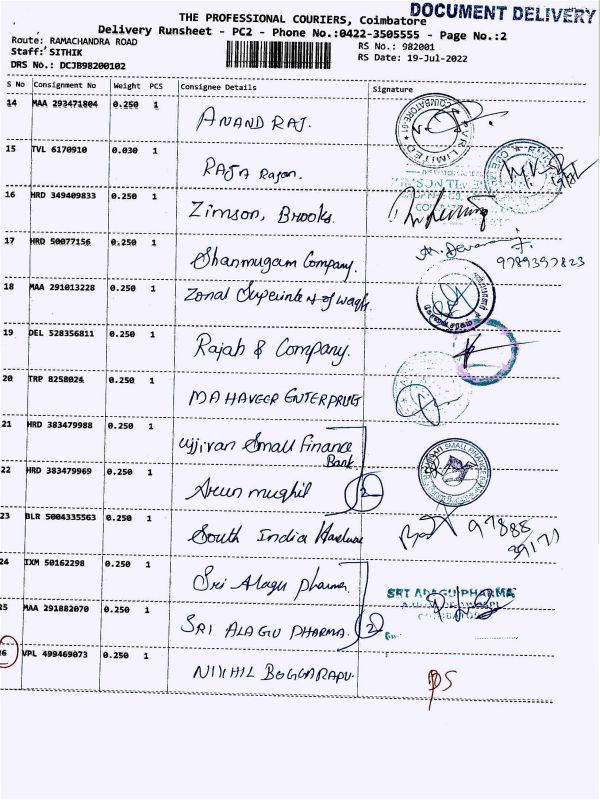 DOCUMENT DELIVERY
THE PROFESSIONAL COURIERS, Coimbatore
Delivery Runsheet - PC2 - Phone No.:0422-3505555 - Page No.:2
Route: RAMACHANDRA ROAD
Staff: SITHIK
DRS No.: DCJB98200102
RS No.: 982001
RS Date: 19-Jul-2022
S No Consignment No Weight PCS Consignee Details Signature
14 MAA 293471804 0.250 1 ANAND RAJ.
COIMBATORE-01 LIMITED
15 TVL 6170910 0.030 1 RAJA Rajan.
16 HRD 349409833 0.250 1 Zimson, Brooks.
17 HRD 50077156 0.250 1 Shanmugam Company.
9789397823
18 MAA 291013228 0.250 1 Zonal Superintent of wagfs.
19 DEL 528356811 0.250 1 Rajah & Company.
20 TRP 8258024 0.250 1 MAHAVEER ENTERPRUG
21 HRD 383479988 0.250 1 ujjivan Small Finance Bank
SMALL FINANCE
22 HRD 383479969 0.250 1 Arun mughil 2
23 BLR 5004335563 0.250 1 South India Hardware
97888
39171
24 IXM 50162298 0.250 1 Sri Alagu pharma
SRI ALAGU PHARMA
25 MAA 291882070 0.250 1 SRI ALAGU PHARMA. 2
26 VPL 499469073 0.250 1 NIKHIL BOGGARAPU.